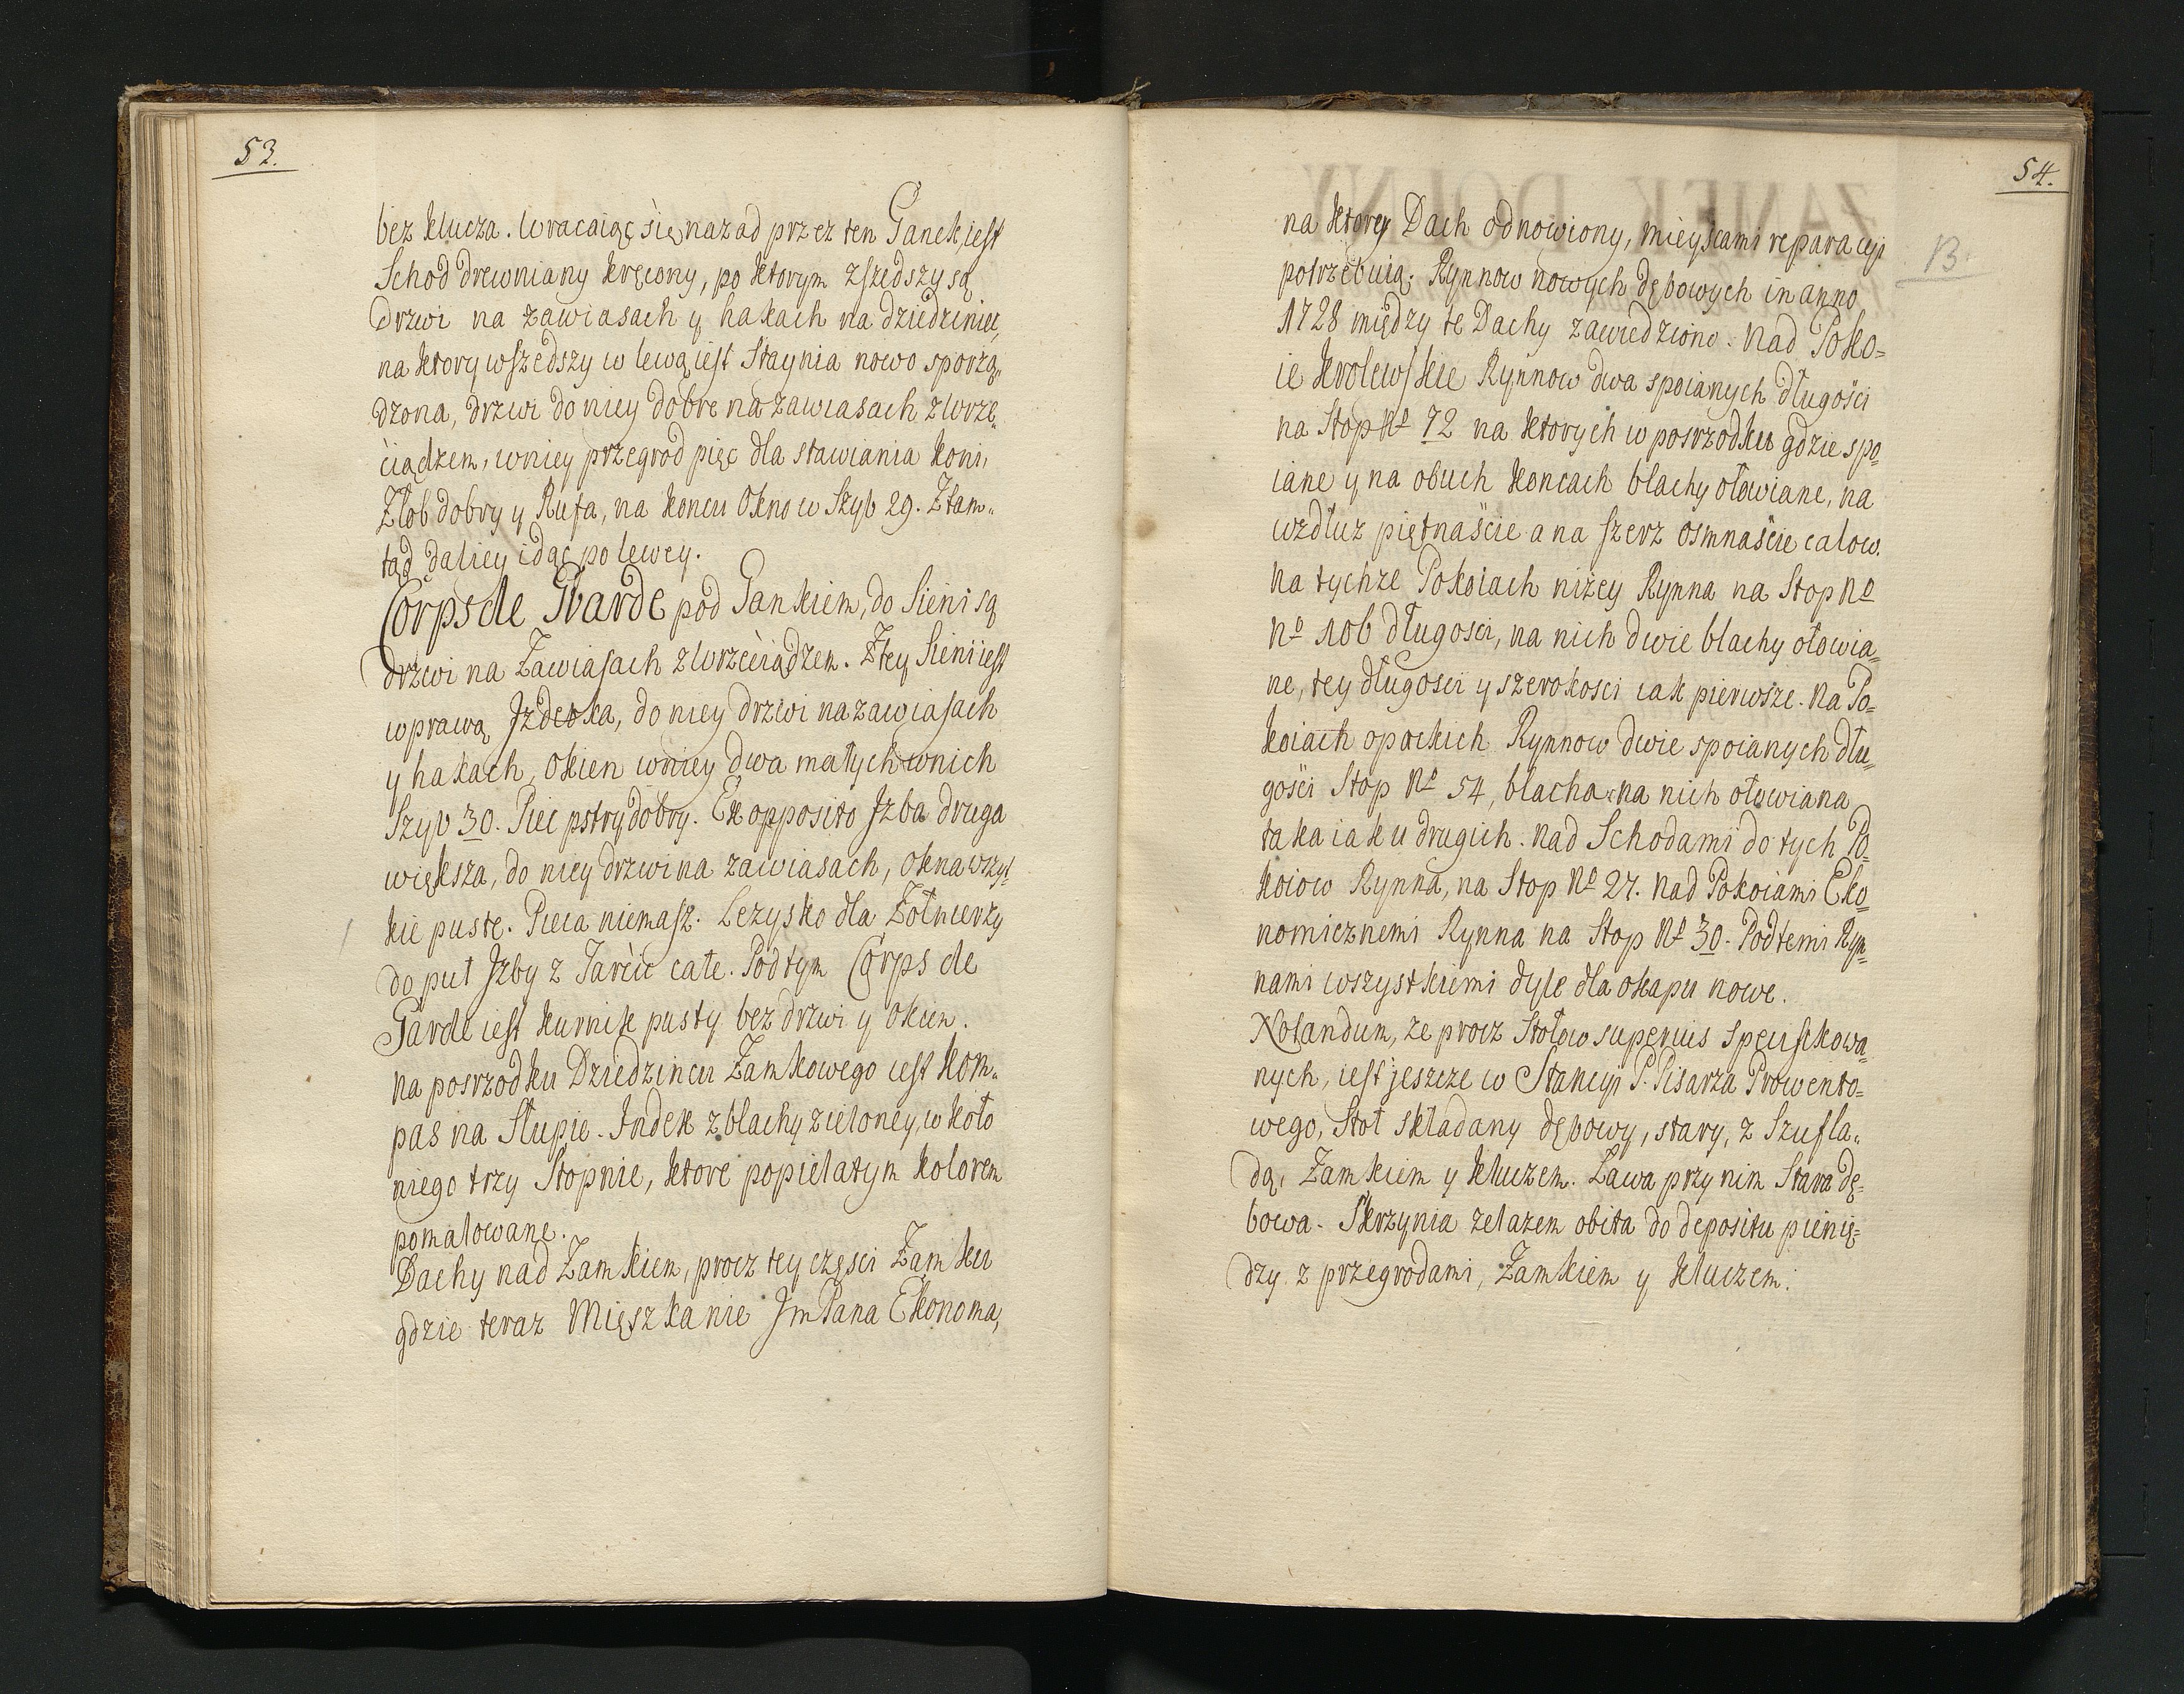 53.
bez klucza. Wracaiąc się nazad przez ten Ganek, iest
Schod drewniany kręcony, po ktorym zszedszy są
Drzwi na zawiasach y hakach na dziedziniec,
na ktory wszedszy w lewą iest Staynia nowo sporzą„
dzona, drzwi do niey dobre na zawiasach z wrze„
ciądzem, w niey przegrod pięc dla stawiania koni,
Złob dobry y Rufa, na koncu Okno w Szyb 29. Ztam„
tąd daliey idąc po lewey.
Corps de Gvarde pod Gankiem, do Sieni są
drzwi na Zawiasach z Wrzeciądzem. Z tey Sieni iest
w prawą Jzdebka, do niey drzwi na zawiasach
y hakach, Okien w niey dwa małych w nich
Szyb 30. Piec pstry dobry. Ex opposito Jzba druga
większa, do niey drzwi na zawiasach, okna wszyt„
kie puste. Pieca niemasz. Lezysko dla Zołnierzy
do puł Jzby z Tarcic całe. Pod tym Corps de
Garde iest kurnik pusty bez drzwi y okien.
Na posrzodku Dziedzincu Zamkowego iest kom„
pas na Słupie. Jndex z blachy zieloney, w koło
niego trzy Stopnie, ktore popielatym kolorem
pomalowane.
Dachy nad Zamkiem, procz tey części Zamku
gdzie teraz Mięszkanie Jm Pana Ekonoma,
54.
B.
na ktorey Dach odnowiony, mieyscami reparacyi
potrzebuią. Rynnow nowych dębowych in anno
1728 między te Dachy zawiedziono. Nad Poko=
ie Krolewskie Rynnow dwa spoianych długości
na Stop No 72 na ktorych w posrzodku gdzie spo=
iane y na obuch koncach blachy ołowiane, na
wzdłuz piętnaście a na szerz osmnaście calow.
Na tychze Pokoiach niżey Rynna na Stop No
No 106 długosci, na nich dwie blachy ołowia=
ne, tey długosci y szerokosci iak pierwsze. Na Po=
koiach opackich Rynnow dwie spoianych dłu=
gości Stop No 54, blacha na nich ołowiana
taka iak u drugich. Nad Schodami do tych Po=
koiow Rynna, na Stop No 27. Nad Pokoiami Eko=
nomicznemi Rynna na Stop No 30. Pod temi Ryn=
nami wszystkiemi dyle dla okapu nowe.
Notandum, ze procz Stołow superius specifikowa=
nych, iest jeszcze w Stancyi P. Pisarza Prowento=
wego, Stoł składany dębowy, stary, z Szufla„
dą, Zamkiem y kluczem. Ława przy nim Stara dę=
bowa. Skrzynia zelazem obita do depositu pienię=
dzy z przegrodami, Zamkiem y kluczem.